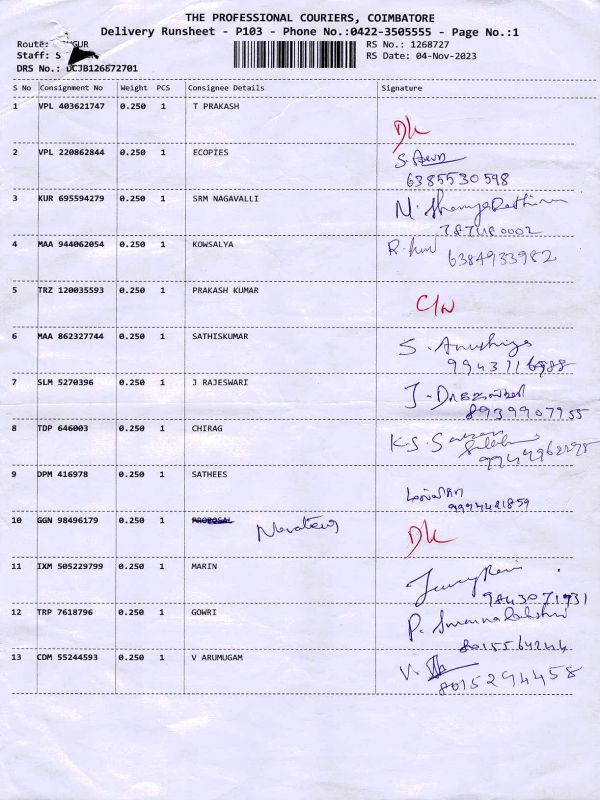 THE PROFESSIONAL COURIERS, COIMBATORE
Delivery Runsheet - P103 - Phone No.:0422-3505555 - Page No.:1
Route: GUR RS No.: 1268727
Staff: S RS Date: 04-Nov-2023
DRS No.: DCJB126872701
S No Consignment No Weight PCS Consignee Details Signature
1 VPL 403621747 0.250 1 T PRAKASH
DL
2 VPL 220862844 0.250 1 ECOPIES S. Arun
6385530598
3 KUR 695594279 0.250 1 SRM NAGAVALLI M.
4 MAA 944062054 0.250 1 KOWSALYA R.
6384933982
5 TRZ 120035593 0.250 1 PRAKASH KUMAR C/N
6 MAA 862327744 0.250 1 SATHISKUMAR S. Anushiya
7 SLM 5270396 0.250 1 J RAJESWARI J.
8939907955
8 TDP 646003 0.250 1 CHIRAG K.S.
9 DPM 416978 0.250 1 SATHEES
9994421859
10 GGN 98496179 0.250 1 PROPOSAL DL
11 IXM 505229799 0.250 1 MARIN
9843071931
12 TRP 7618796 0.250 1 GOWRI P.
13 CDM 55244593 0.250 1 V ARUMUGAM V.
8015294458